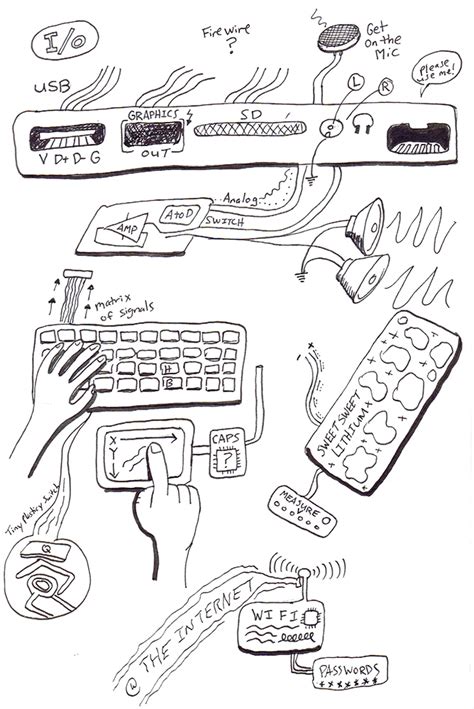 I/O
Firewire
?
Get
On the
Mic
USB
Please
use me!
GRAPHICS
SD
L
R
V D+ D- G
OUT
Analog
AMP
A to D
SWITCH
matrix
of signals
H
B
X
Y
CAPS
?
SWEET SWEET
LITHIUM
MEASURE
V
Q
@ THE INTERNET
WIFI
PASSWORDS
**********